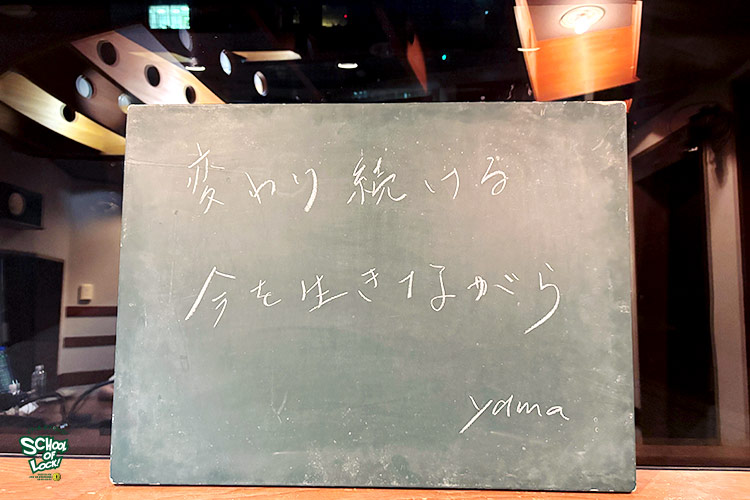 変わり続ける
今を生きながら
yama
SCHOOL
OF
LOCK!